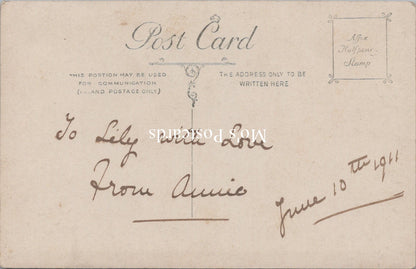 Post Card
Affix
Halfpenny
Stamp
THIS PORTION MAY BE USED
FOR COMMUNICATION
(INLAND POSTAGE ONLY)
THE ADDRESS ONLY TO BE
WRITTEN HERE
Mo's Postcards
To Lily with Love
From Annie
June 10th 1911